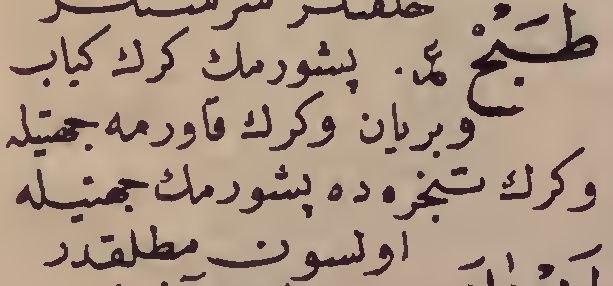 طَبْخٌ ع. پشورمك كرك كباب
وبريان وكرك قاورمه جهتيله
وكرك تنجره ده پشورمك جهتيله
اولسون مطلقدر